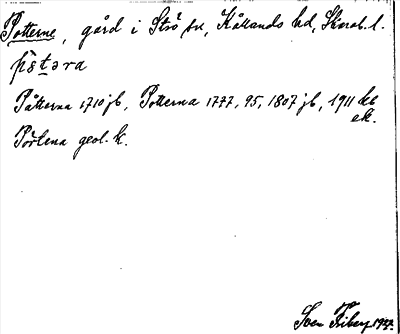 Potterne, gård i Strö sn, Kållands hd, Skarab. l.
Påtterna 1710 jb, Potterna 1777, 95, 1807 jb, 1911 kb
ek.
geol. k.
Sven Friberg 1927.